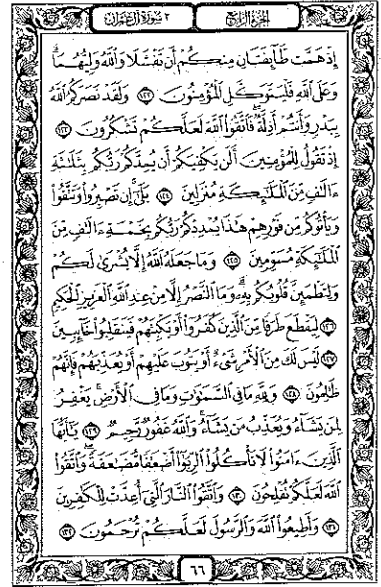 الجزء الرابع
٣ سورة آل عمران
إِذْ هَمَّت طَّآئِفَتَانِ مِنكُمْ أَن تَفْشَلَا وَٱللَّهُ وَلِيُّهُمَا ۗ
وَعَلَى ٱللَّهِ فَلْيَتَوَكَّلِ ٱلْمُؤْمِنُونَ ١٢٢ وَلَقَدْ نَصَرَكُمُ ٱللَّهُ
بِبَدْرٍ وَأَنتُمْ أَذِلَّةٌ ۖ فَٱتَّقُوا۟ ٱللَّهَ لَعَلَّكُمْ تَشْكُرُونَ ١٢٣
إِذْ تَقُولُ لِلْمُؤْمِنِينَ أَلَن يَكْفِيَكُمْ أَن يُمِدَّكُمْ رَبُّكُم بِثَلَٰثَةِ
ءَالَٰفٍ مِّنَ ٱلْمَلَٰٓئِكَةِ مُنزَلِينَ ١٢٤ بَلَىٰٓ ۚ إِن تَصْبِرُوا۟ وَتَتَّقُوا۟
وَيَأْتُوكُم مِّن فَوْرِهِمْ هَٰذَا يُمْدِدْكُمْ رَبُّكُم بِخَمْسَةِ ءَالَٰفٍ مِّنَ
ٱلْمَلَٰٓئِكَةِ مُسَوِّمِينَ ١٢٥ وَمَا جَعَلَهُ ٱللَّهُ إِلَّا بُشْرَىٰ لَكُمْ
وَلِتَطْمَئِنَّ قُلُوبُكُم بِهِۦ ۗ وَمَا ٱلنَّصْرُ إِلَّا مِنْ عِندِ ٱللَّهِ ٱلْعَزِيزِ ٱلْحَكِيمِ
١٢٦ لِيَقْطَعَ طَرَفًا مِّنَ ٱلَّذِينَ كَفَرُوٓا۟ أَوْ يَكْبِتَهُمْ فَيَنقَلِبُوا۟ خَآئِبِينَ
١٢٧ لَيْسَ لَكَ مِنَ ٱلْأَمْرِ شَىْءٌ أَوْ يَتُوبَ عَلَيْهِمْ أَوْ يُعَذِّبَهُمْ فَإِنَّهُمْ
ظَٰلِمُونَ ١٢٨ وَلِلَّهِ مَا فِى ٱلسَّمَٰوَٰتِ وَمَا فِى ٱلْأَرْضِ ۚ يَغْفِرُ
لِمَن يَشَآءُ وَيُعَذِّبُ مَن يَشَآءُ ۚ وَٱللَّهُ غَفُورٌ رَّحِيمٌ ١٢٩ يَٰٓأَيُّهَا
ٱلَّذِينَ ءَامَنُوا۟ لَا تَأْكُلُوا۟ ٱلرِّبَوٰٓا۟ أَضْعَٰفًا مُّضَٰعَفَةً ۖ وَٱتَّقُوا۟
ٱللَّهَ لَعَلَّكُمْ تُفْلِحُونَ ١٣٠ وَٱتَّقُوا۟ ٱلنَّارَ ٱلَّتِىٓ أُعِدَّتْ لِلْكَٰفِرِينَ
١٣١ وَأَطِيعُوا۟ ٱللَّهَ وَٱلرَّسُولَ لَعَلَّكُمْ تُرْحَمُونَ ١٣٢
٦٦